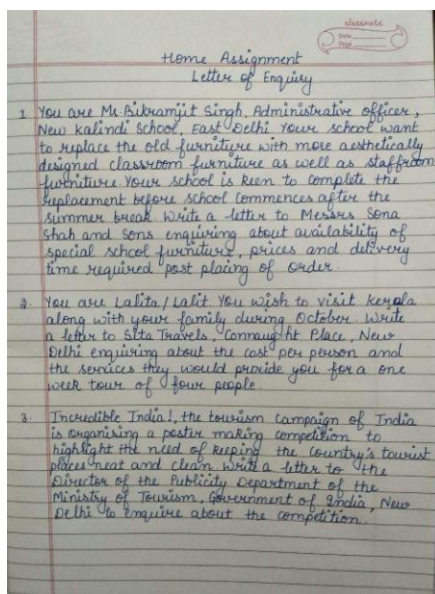 classmate
Date
Page
Home Assignment
Letter of Enquiry
1. You are Mr. Bikramjit Singh, Administrative officer,
New Kalindi School, East Delhi. Your school want
to replace the old furniture with more aesthetically
designed classroom furniture as well as staffroom
furniture. Your school is keen to complete the
replacement before school commences after the
summer break. Write a letter to Messrs Sona
Shah and Sons enquiring about availability of
special school furniture, prices and delivery
time required post placing of order.
2. You are Lalita/Lalit. You wish to visit Kerala
along with your family during October. Write
a letter to Sita Travels, Connaught Place, New
Delhi enquiring about the cost per person and
the services they would provide you for a one
week tour of four people.
3. Incredible India!, the tourism campaign of India
is organising a poster making competition to
highlight the need of keeping the country's tourist
places neat and clean. Write a letter to the
Director of the Publicity Department of the
Ministry of Tourism, Government of India, New
Delhi to enquire about the competition.